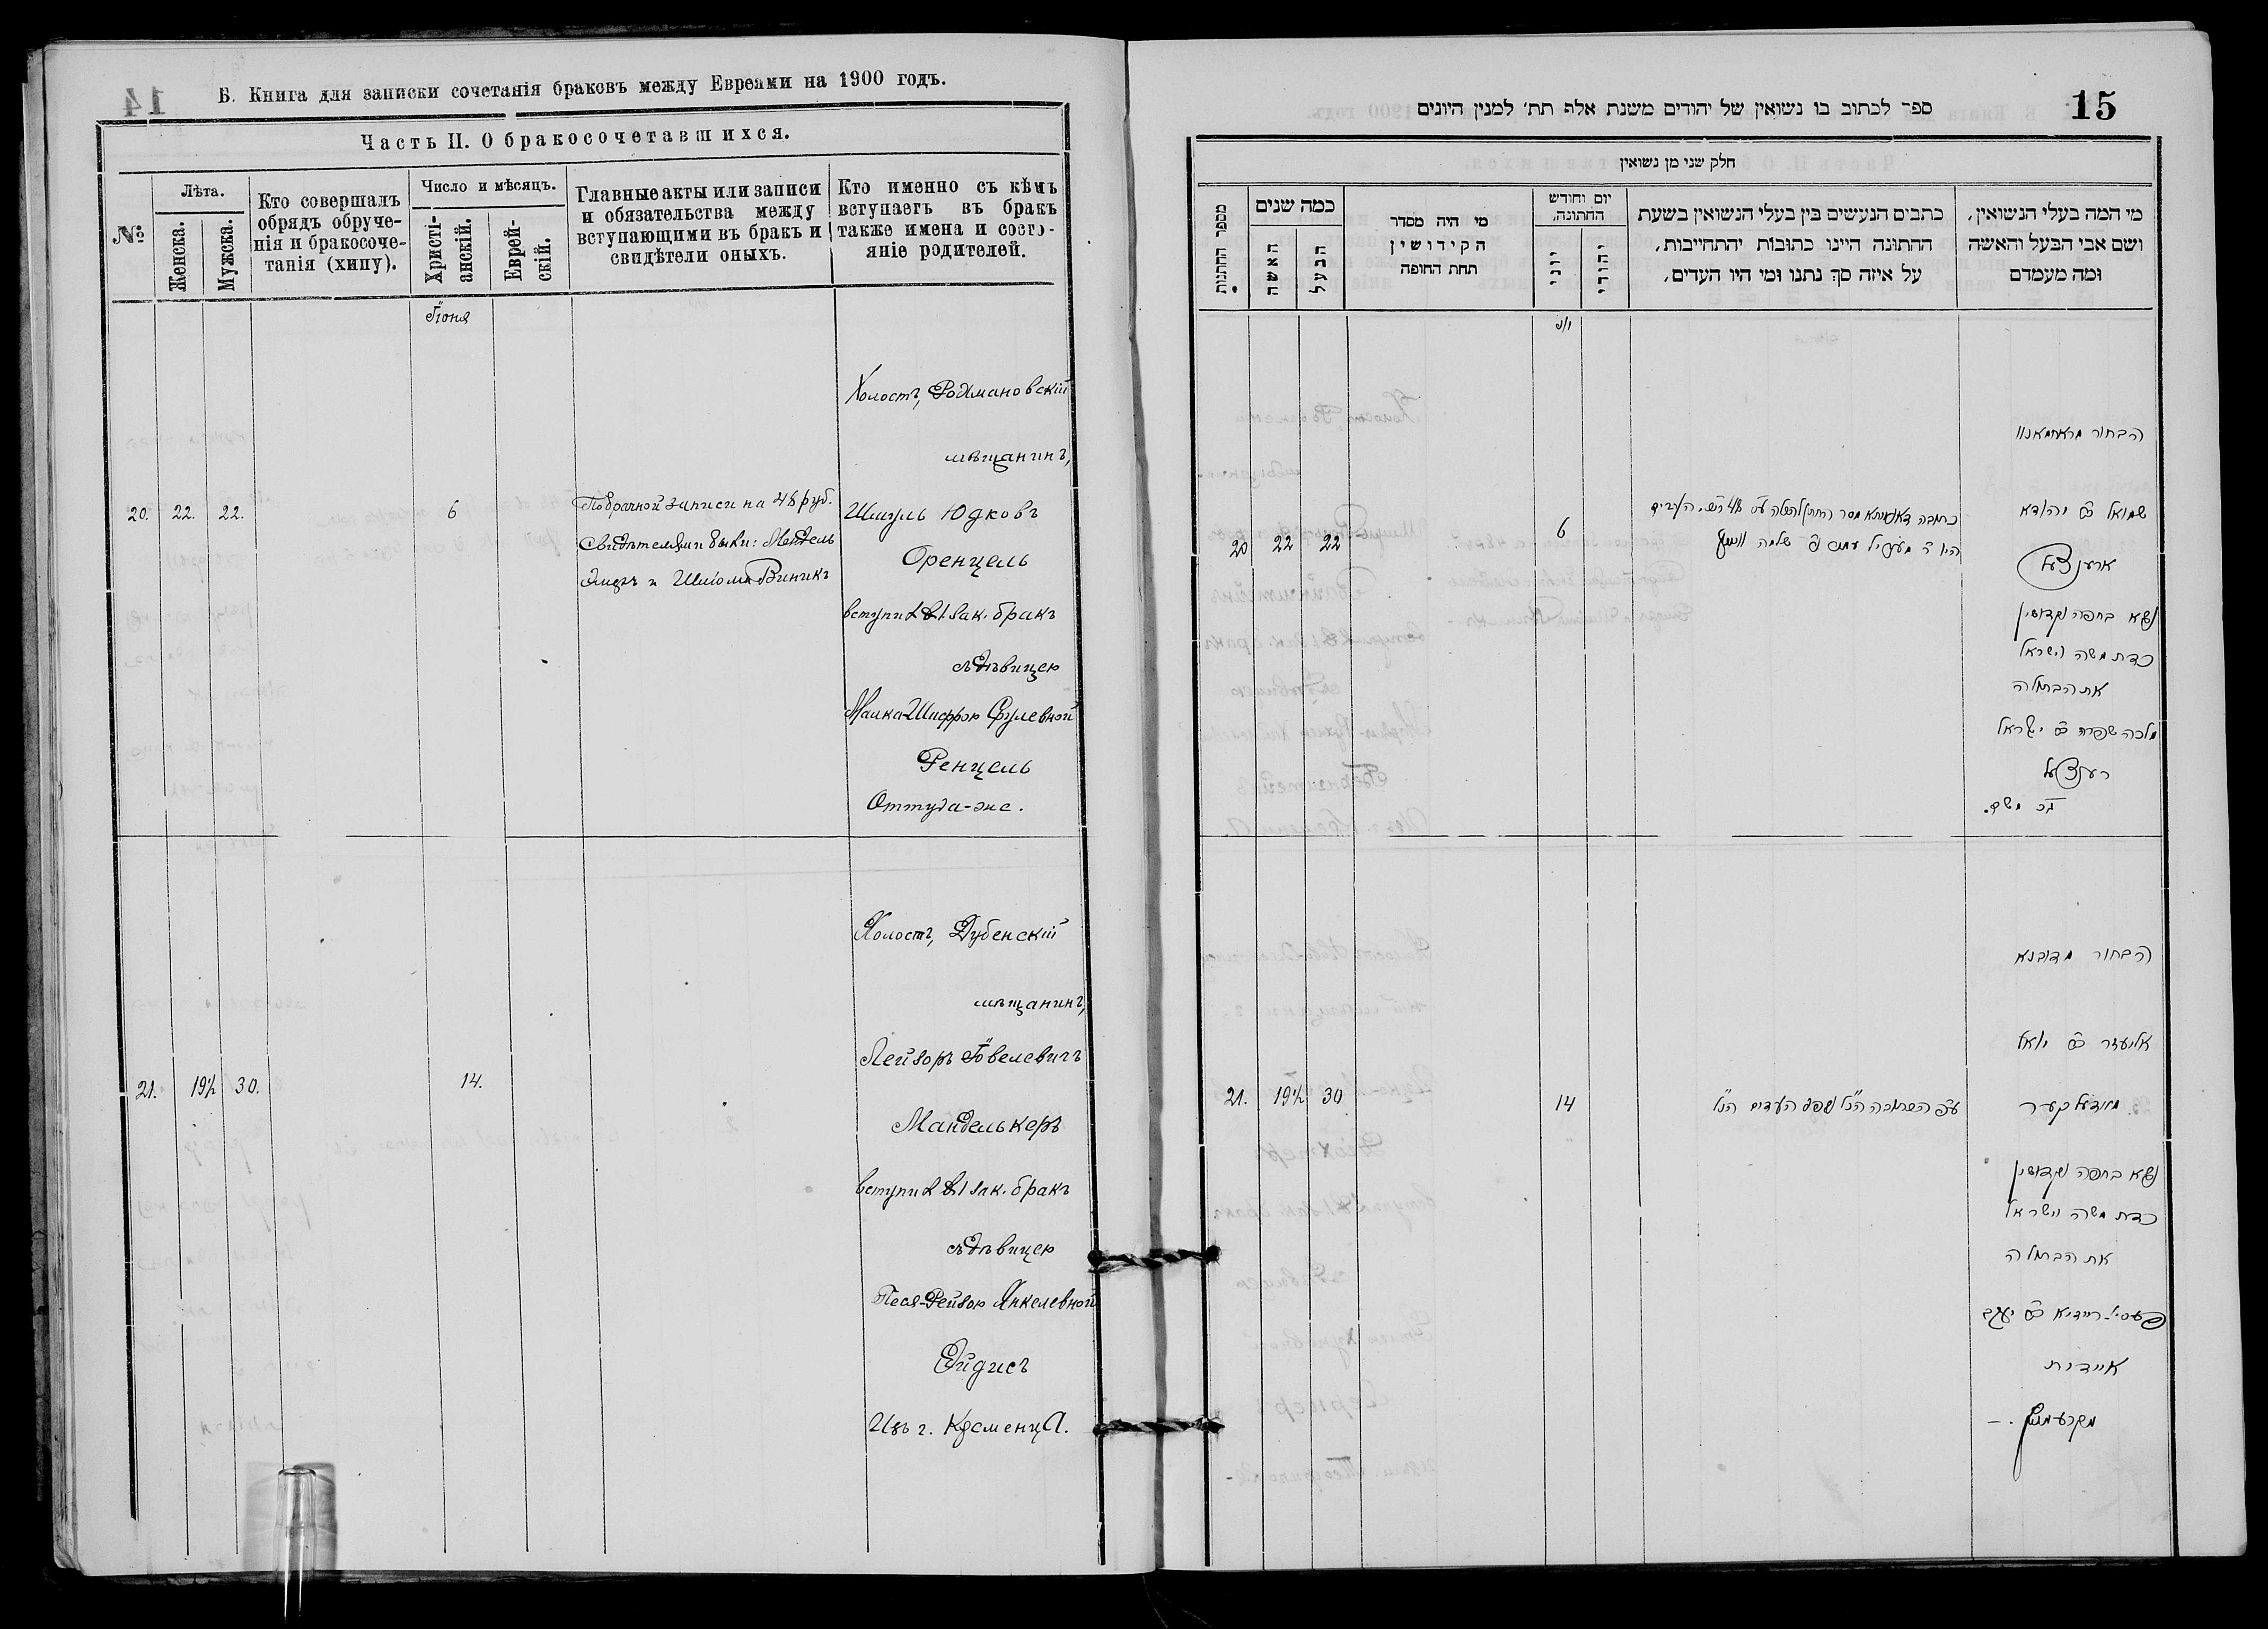 Б. Книга для записки сочетанія браковъ между Евреями на 1900 годъ.
Часть II. О бракосочетавшихся.
№
Лѣта.
Женска.
Мужска.
Кто совершалъ
обрядъ обруче-
нія и бракосоче-
танія (хипу).
Число и мѣсяцъ.
Христі-
анскій.
Еврей-
скій.
Главные акты или записи
и обязательства между
вступающими въ бракъ и
свидѣтели оныхъ.
Кто именно съ кѣмъ
вступаетъ въ бракъ
также имена и состо-
яніе родителей.
Іюня
20. 22. 22. 6
По брачной записи на 48 руб.
Свидѣтелями были: Мендель
и Шлiома Виникъ
Холостъ, Родмановскій
мѣщанинъ,
Шмуль Юдковъ
Оренцель
вступилъ въ 1 зак. бракъ
съ дѣвицею
Малка-Шифрою Срулевной
Ренцель
Оттуда-же.
21. 19½ 30. 14.
Холостъ, Дубенскій
мѣщанинъ,
Лейзоръ Іовелевичъ
Манделькеръ
вступилъ въ 1 зак. бракъ
съ дѣвицею
Песя-Рейзою Янкелевной
Эйдисъ
Изъ г. Кременца.
15
ספר לכתוב בו נשואין של יהודים משנת אלף תת׳ למנין היונים
חלק שני מן נשואין
מספר החתונות
כמה שנים
האשה
הבעל
מי היה מסדר
הקידושין
תחת החופה
יום וחודש
החתונה.
יוני
יהודי
כתבים הנעשים בין בעלי הנשואין בשעת
החתונה היינו כתובות יהתחייבות,
על איזה סך נתנו ומי היו העדים,
מי המה בעלי הנשואין,
ושם אבי הבעל והאשה
ומה מעמדם
20 22 22 6
הבחור
שמואל בן יהודא
ארענצעל
נשא בחפה וקדושין
כדת משה וישראל
את הבתולה
מלכה שפרה בת ישראל
רענצעל
21. 19½ 30 14
הבחור מדובנא
אליעזר בן יואל
מאנדעלקער
נשא בחפה וקדושין
כדת משה וישראל
את הבתולה
פעסי-רייזא בת יעקב
איידיס
מקרעמניץ.